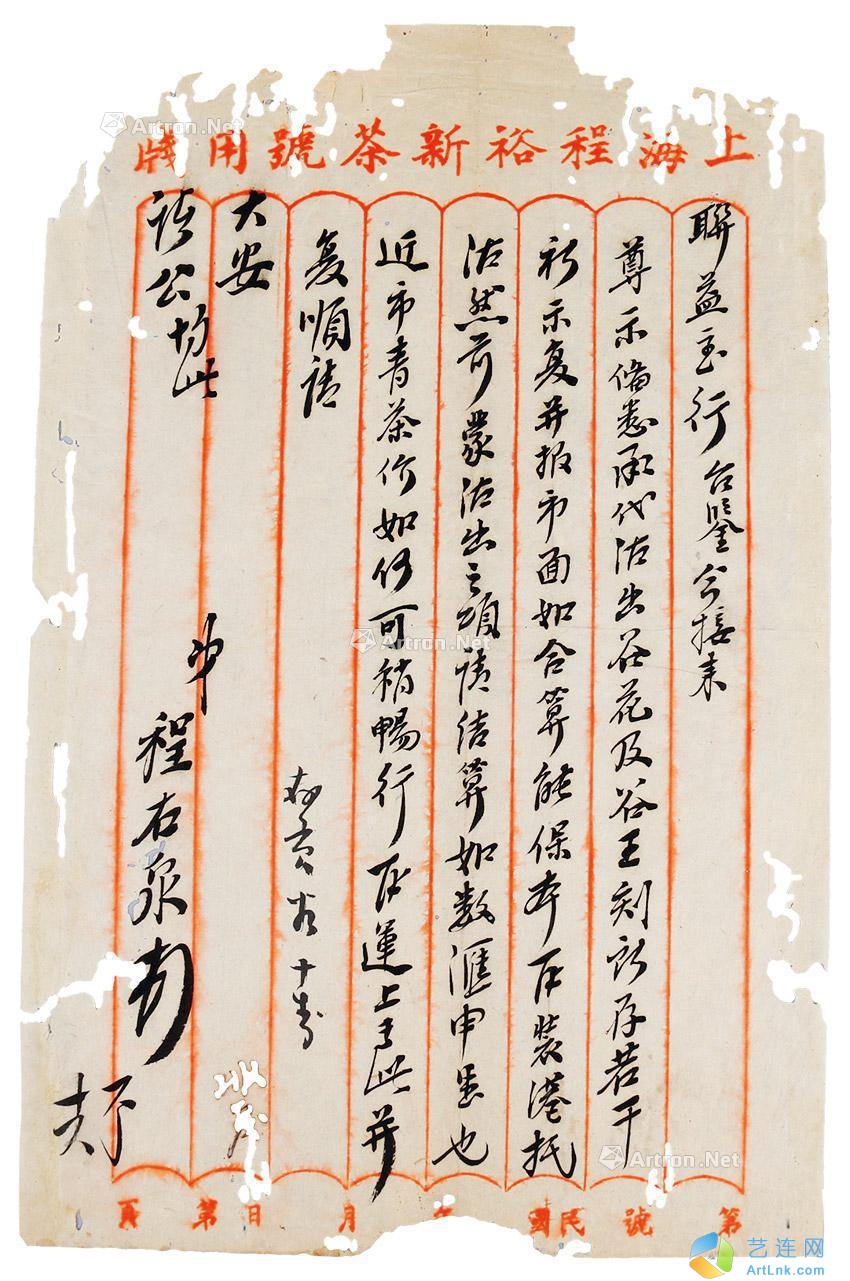 上海程裕新茶號用牋
聯益寶行台鑒今接來
尊示備悉承代沽出茶花及谷王刻所存若干
祈示复并报市面如合算能保本再裝港抵
沽然前蒙沽出之項請結算如数滙申是也
近市青茶价如何可稍暢行再運上专此并
复順請
大安
諸公均此
申
程右泉
第 號 民國 月 日 第 頁
Artron.Net
Artron.Net
Artron.Net
艺连网
ArtLnk.com